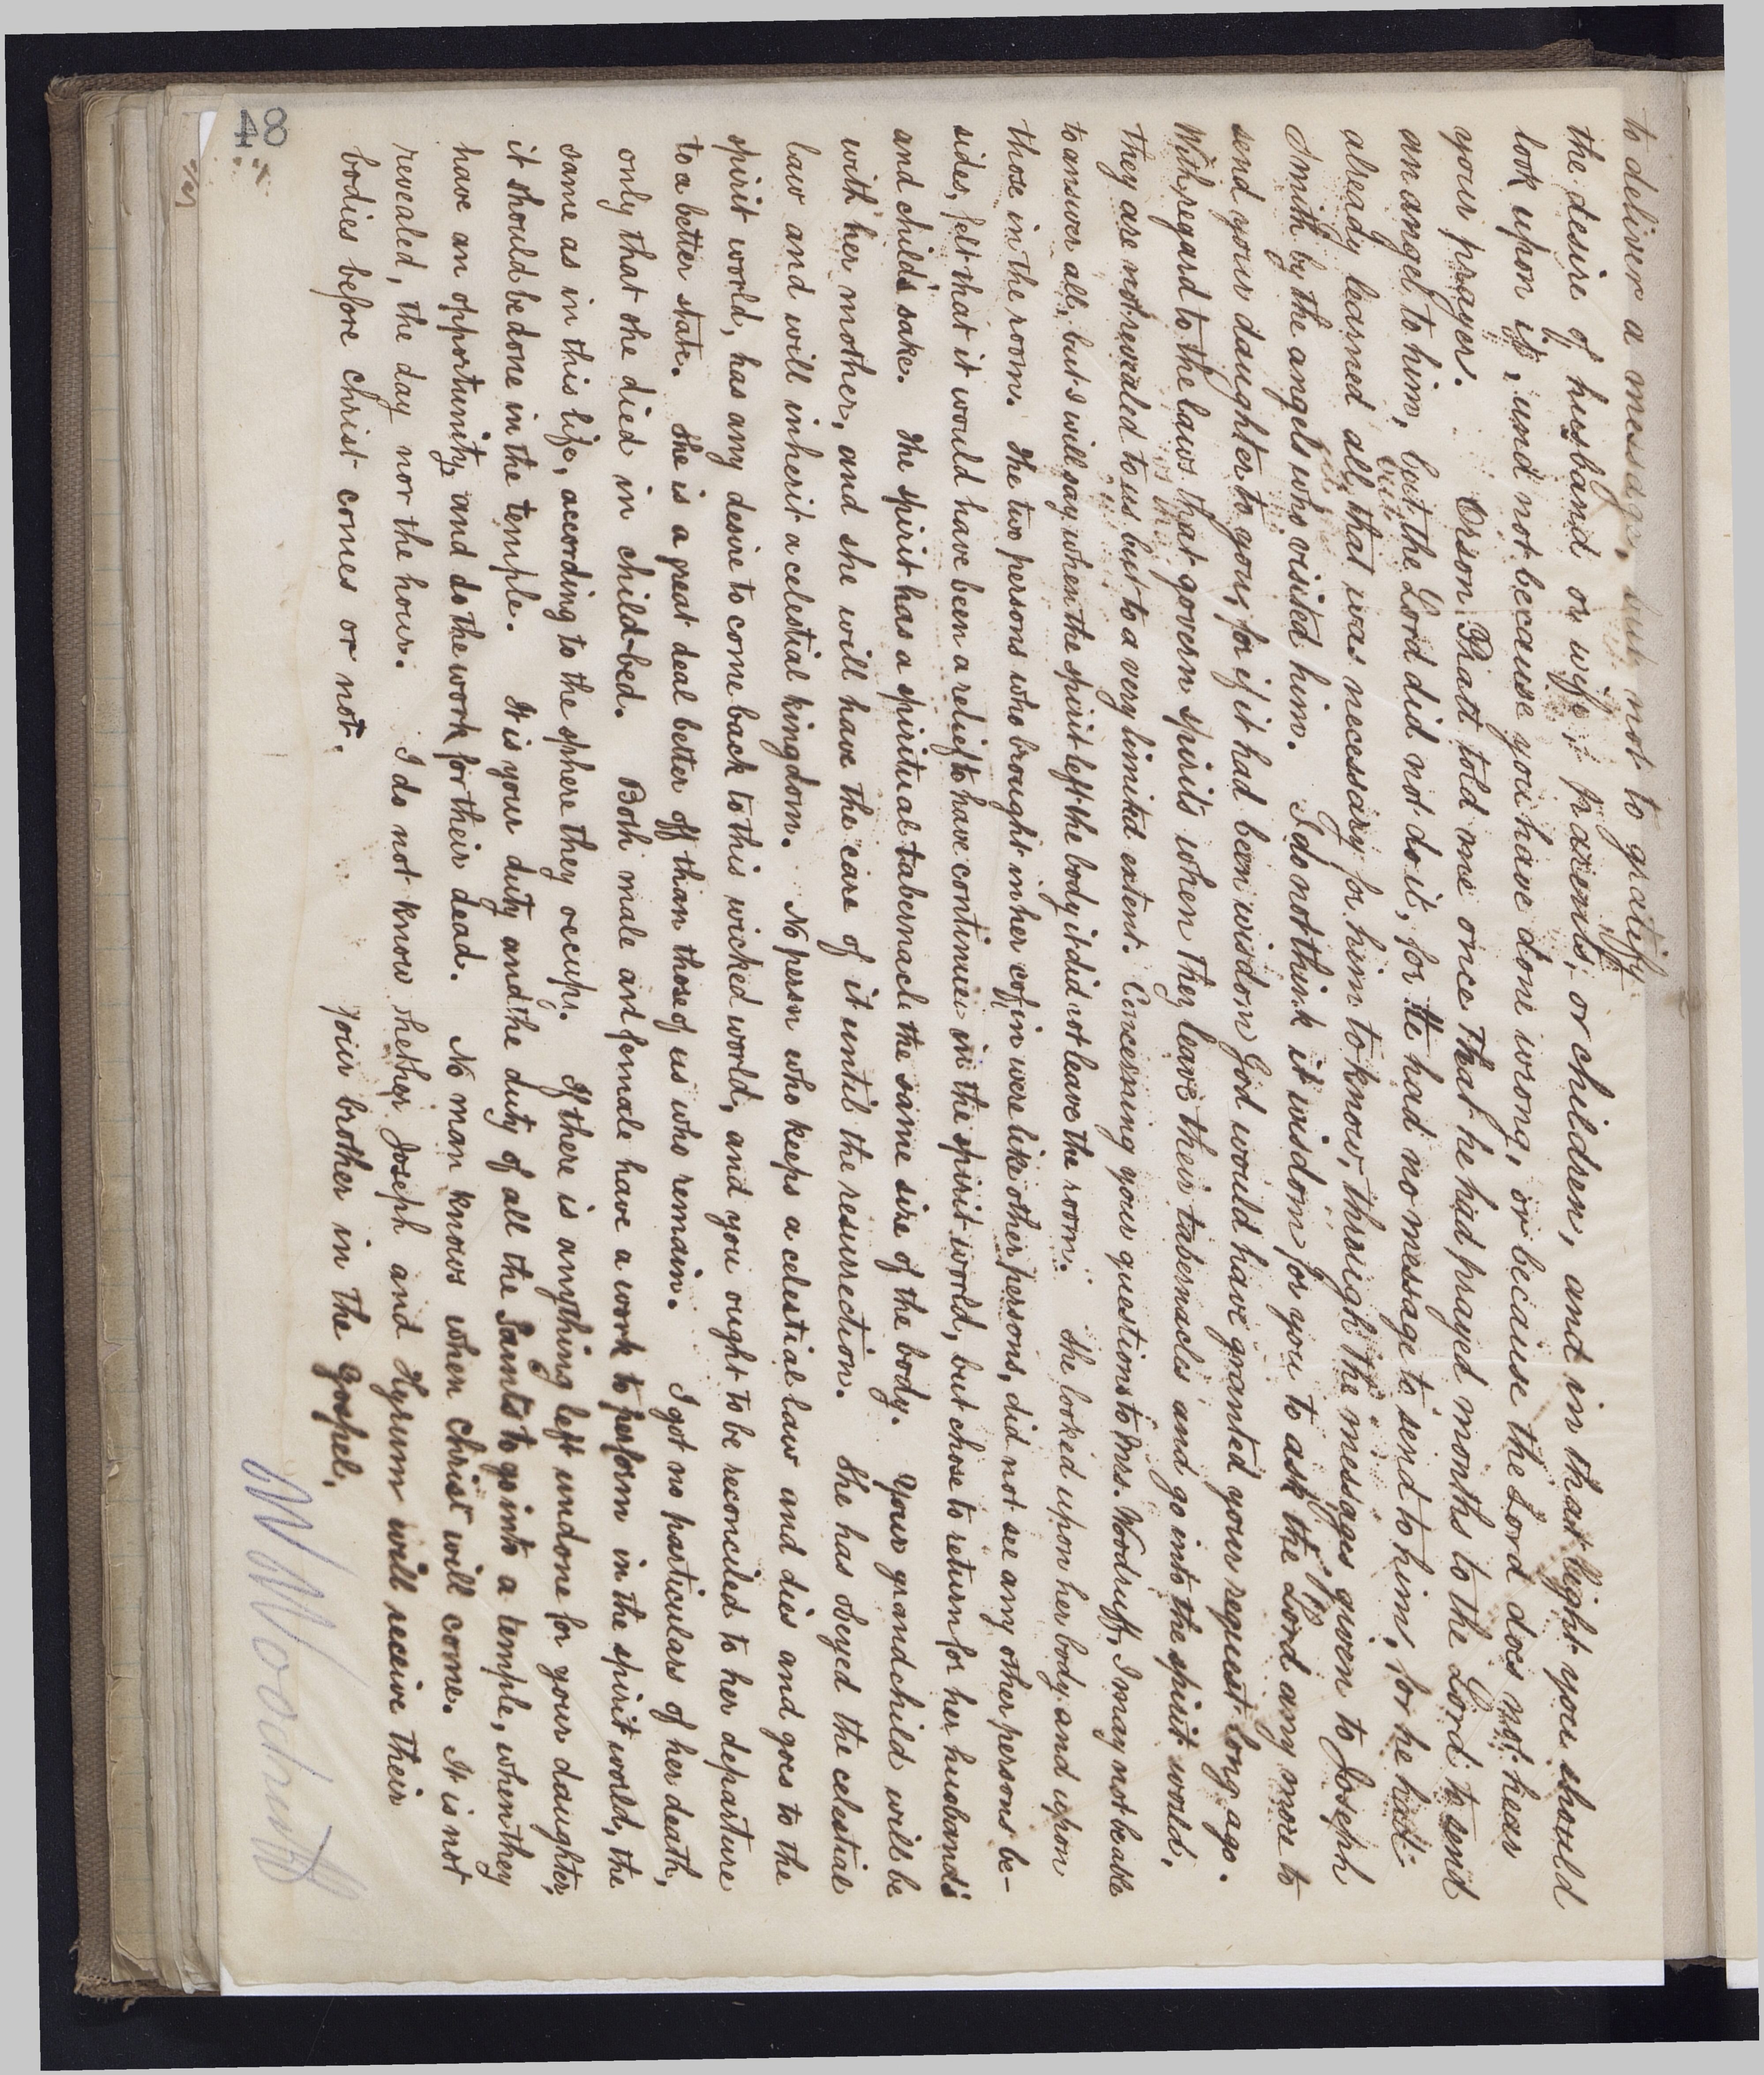 to deliver a message, but not to gratify
the desire of husband or wife, parents, or children, and in that light you should
look upon it, and not because you have done wrong, or because the Lord does not hear
your prayer. Orson Pratt told me once that he had prayed months to the Lord to send
an angel to him, but the Lord did not do it, for He had no message to send to him, for he had
already learned all that was necessary for him to know, through the messages given to Joseph
Smith by the angels who visited him. I do not think it wisdom for you to ask the Lord any more to
send your daughter to you, for if it had been wisdom God would have granted your request long ago.
With regard to the laws that govern spirits when they leave their tabernacles and go into the spirit world,
they are not revealed to us but to a very limited extent. Concerning your questions to Mrs. Woodruff, I may not be able
to answer all, but I will say when the spirit left the body it did not leave the room. She looked upon her body and upon
those in the room. The two persons who brought in her coffin were like other persons, did not see any other persons be-
sides, felt that it would have been a relief to have continued in the spirit world, but chose to return for her husband's
and child's sake. The spirit has a spiritual tabernacle the same size of the body. Your grandchild will be
with her mother, and she will have the care of it until the resurrection. She has obeyed the celestial
law and will inherit a celestial kingdom. No person who keeps a celestial law and dies and goes to the
spirit world, has any desire to come back to this wicked world, and you ought to be reconciled to her departure
to a better state. She is a great deal better off than those of us who remain. I got no particulars of her death,
only that she died in child-bed. Both male and female have a work to perform in the spirit world, the
same as in this life, according to the sphere they occupy. If there is anything left undone for your daughter,
it should be done in the temple. It is your duty and the duty of all the Saints to go into a temple, when they
have an opportunity, and do the work for their dead. No man knows when Christ will come. It is not
revealed, the day nor the hour. I do not know whether Joseph and Hyrum will receive their
bodies before Christ comes or not.
Your brother in the Gospel,
W Woodruff
48